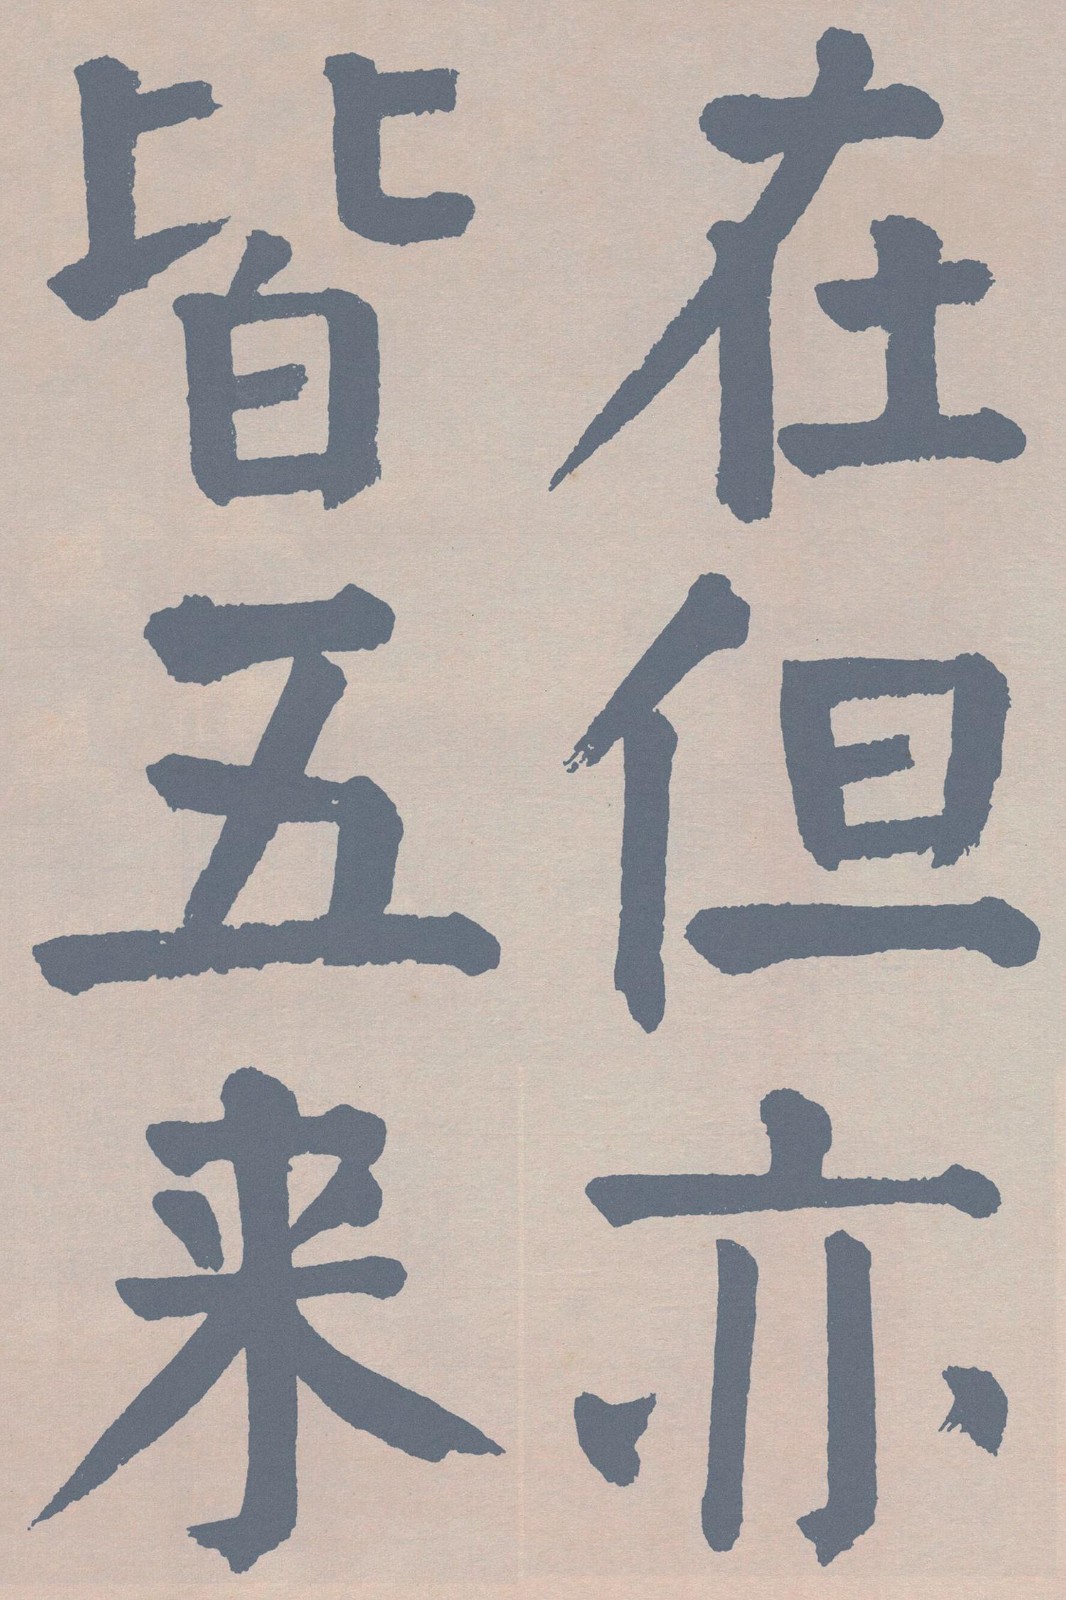 在但亦
皆五来